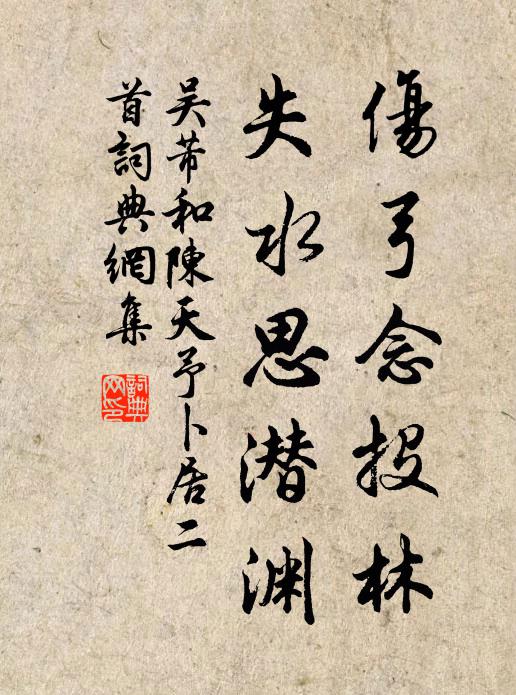 傷弓念投林
失水思潜渊
吴芾和陳天予卜居二
首詞典網集
詞典
网印